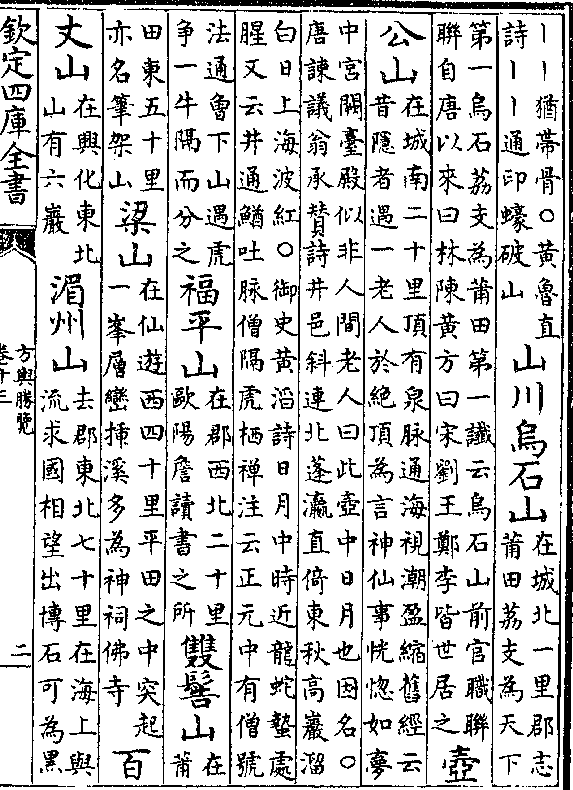 丨丨猶帶骨○黃魯直
詩丨丨通印蠔破山
山川烏石山
在城北一里郡志
莆田荔支為天下
第一烏石荔支為莆田第一讖云烏石山前官職聯
聯自唐以來曰林陳黃方曰宋劉王鄭李皆世居之
壺
公山
在城南二十里頂有泉脉通海視潮盈縮舊經云
昔隱者遇一老人於絕頂為言神仙事恍惚如夢
中宮闕臺殿似非人間老人曰此壺中日月也因名○
唐諫議翁承賛詩井邑斜連北蓬瀛直倚東秋高巖溜
白日上海波紅○御史黃滔詩日月中時近龍蛇蟄處
腥又云井通鰌吐脉僧隔虎栖禪注云正元中有僧號
法通魯下山遇虎
爭一牛隔而分之
福平山
在郡西北二十里
歐陽詹讀書之所
雙髻山
在
莆
田東五十里
亦名筆架山
梁山
在仙遊西四十里平田之中突起
一峯層巒揷溪多為神祠佛寺
百
丈山
在興化東北
山有六巖
湄州山
去郡東北七十里在海上與
流求國相望出博石可為黑
欽定四庫全書
方輿勝覽
卷十三
二